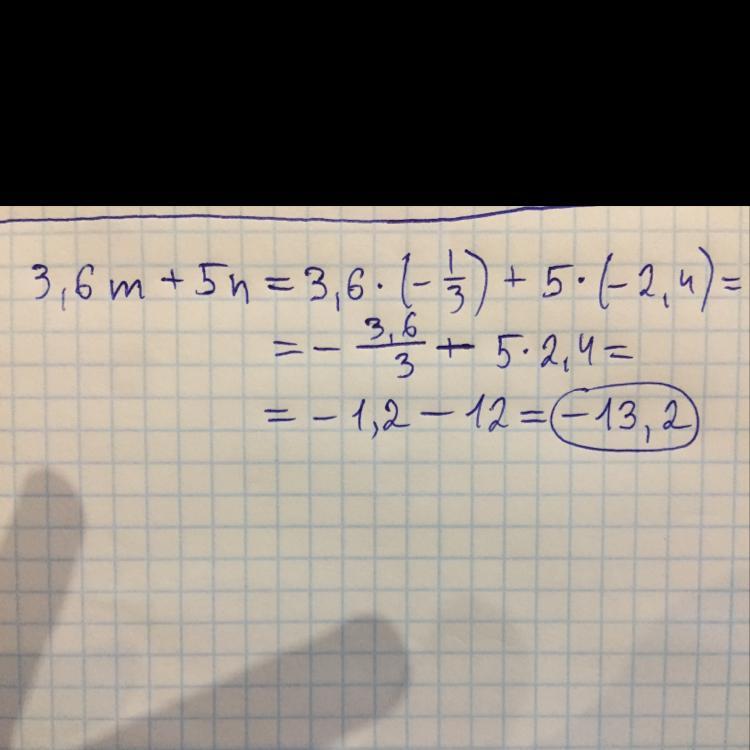 3,6m + 5n = 3,6 · (-1/3) + 5 · (-2,4) =
= - 3,6/3 - 5 · 2,4 =
= - 1,2 - 12 = -13,2